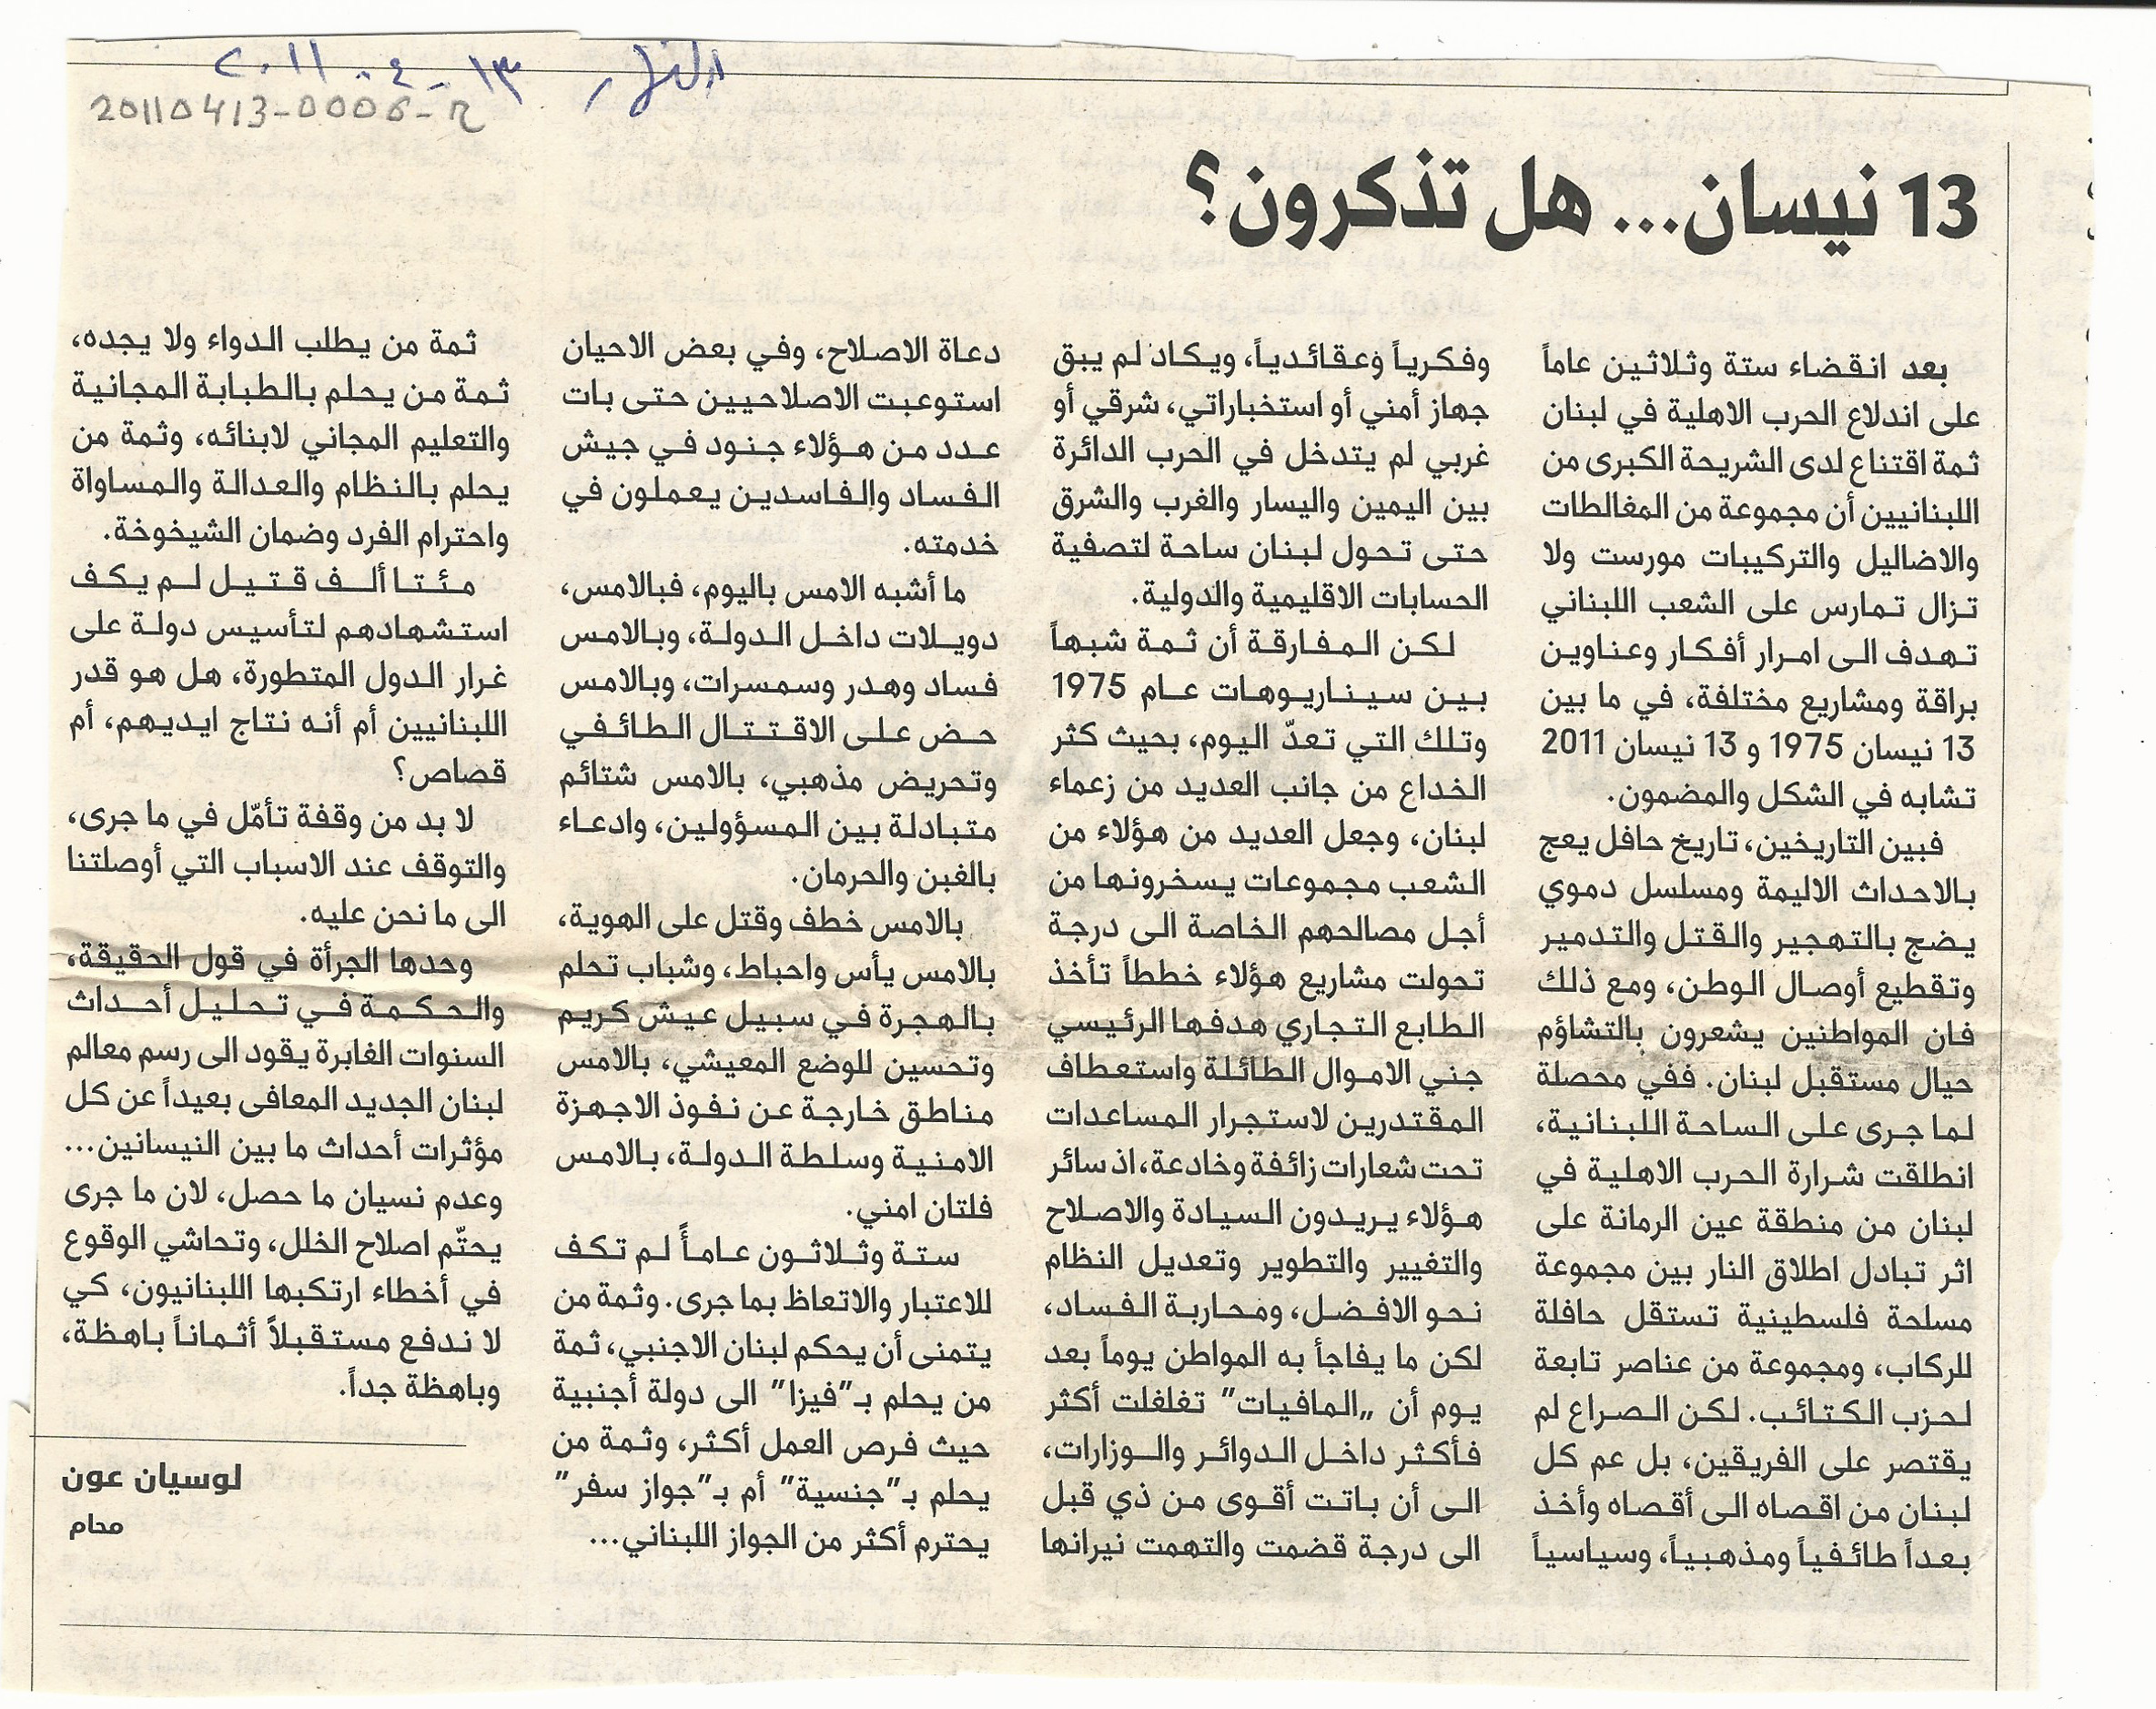 النهار ١٣-٤-٢٠١١
20110413-0006-R
13 نيسان... هل تذكرون؟
بعد انقضاء ستة وثلاثين عاماً
على اندلاع الحرب الاهلية في لبنان
ثمة اقتناع لدى الشريحة الكبرى من
اللبنانيين أن مجموعة من المغالطات
والاضاليل والتركيبات مورست ولا
تزال تمارس على الشعب اللبناني
تهدف الى امرار أفكار وعناوين
براقة ومشاريع مختلفة، في ما بين
13 نيسان 1975 و 13 نيسان 2011
تشابه في الشكل والمضمون.
فبين التاريخين، تاريخ حافل يعج
بالاحداث الاليمة ومسلسل دموي
يضج بالتهجير والقتل والتدمير
وتقطيع أوصال الوطن، ومع ذلك
فان المواطنين يشعرون بالتشاؤم
حيال مستقبل لبنان. ففي محصلة
لما جرى على الساحة اللبنانية،
انطلقت شرارة الحرب الاهلية في
لبنان من منطقة عين الرمانة على
اثر تبادل اطلاق النار بين مجموعة
مسلحة فلسطينية تستقل حافلة
للركاب، ومجموعة من عناصر تابعة
لحزب الكتائب. لكن الصراع لم
يقتصر على الفريقين، بل عم كل
لبنان من اقصاه الى أقصاه وأخذ
بعداً طائفياً ومذهبياً، وسياسياً
وفكرياً وعقائدياً، ويكاد لم يبق
جهاز أمني أو استخباراتي، شرقي أو
غربي لم يتدخل في الحرب الدائرة
بين اليمين واليسار والغرب والشرق
حتى تحول لبنان ساحة لتصفية
الحسابات الاقليمية والدولية.
لكن المفارقة أن ثمة شبهاً
بين سيناريوهات عام 1975
وتلك التي تعدّ اليوم، بحيث كثر
الخداع من جانب العديد من زعماء
لبنان، وجعل العديد من هؤلاء من
الشعب مجموعات يسخرونها من
أجل مصالحهم الخاصة الى درجة
تحولت مشاريع هؤلاء خططاً تأخذ
الطابع التجاري هدفها الرئيسي
جني الاموال الطائلة واستعطاف
المقتدرين لاستجرار المساعدات
تحت شعارات زائفة وخادعة، اذ سائر
هؤلاء يريدون السيادة والاصلاح
والتغيير والتطوير وتعديل النظام
نحو الافضل، ومحاربة الفساد،
لكن ما يفاجأ به المواطن يوماً بعد
يوم أن „المافيات" تغلغلت أكثر
فأكثر داخل الدوائر والوزارات،
الى أن باتت أقوى من ذي قبل
الى درجة قضمت والتهمت نيرانها
دعاة الاصلاح، وفي بعض الاحيان
استوعبت الاصلاحيين حتى بات
عدد من هؤلاء جنود في جيش
الفساد والفاسدين يعملون في
خدمته.
ما أشبه الامس باليوم، فبالامس،
دويلات داخل الدولة، وبالامس
فساد وهدر وسمسرات، وبالامس
حض على الاقتتال الطائفي
وتحريض مذهبي، بالامس شتائم
متبادلة بين المسؤولين، وادعاء
بالغبن والحرمان.
بالامس خطف وقتل على الهوية،
بالامس يأس واحباط، وشباب تحلم
بالهجرة في سبيل عيش كريم
وتحسين للوضع المعيشي، بالامس
مناطق خارجة عن نفوذ الاجهزة
الامنية وسلطة الدولة، بالامس
فلتان امني.
ستة وثلاثون عاماً لم تكف
للاعتبار والاتعاظ بما جرى. وثمة من
يتمنى أن يحكم لبنان الاجنبي، ثمة
من يحلم بـ"فيزا" الى دولة أجنبية
حيث فرص العمل أكثر، وثمة من
يحلم بـ"جنسية" أم بـ"جواز سفر"
يحترم أكثر من الجواز اللبناني...
ثمة من يطلب الدواء ولا يجده،
ثمة من يحلم بالطبابة المجانية
والتعليم المجاني لابنائه، وثمة من
يحلم بالنظام والعدالة والمساواة
واحترام الفرد وضمان الشيخوخة.
مئتا ألف قتيل لم يكف
استشهادهم لتأسيس دولة على
غرار الدول المتطورة، هل هو قدر
اللبنانيين أم أنه نتاج ايديهم، أم
قصاص؟
لا بد من وقفة تأمّل في ما جرى،
والتوقف عند الاسباب التي أوصلتنا
الى ما نحن عليه.
وحدها الجرأة في قول الحقيقة،
والحكمة في تحليل أحداث
السنوات الغابرة يقود الى رسم معالم
لبنان الجديد المعافى بعيداً عن كل
مؤثرات أحداث ما بين النيسانين...
وعدم نسيان ما حصل، لان ما جرى
يحتّم اصلاح الخلل، وتحاشي الوقوع
في أخطاء ارتكبها اللبنانيون، كي
لا ندفع مستقبلاً أثماناً باهظة،
وباهظة جداً.
لوسيان عون
محام